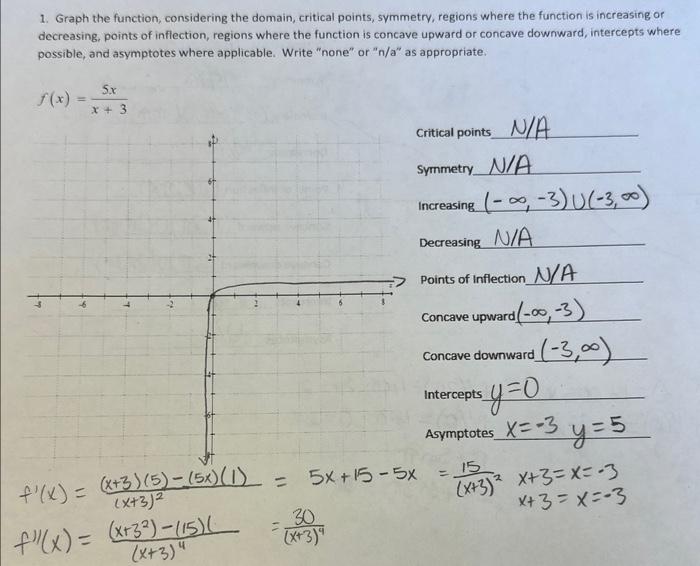 1. Graph the function, considering the domain, critical points, symmetry, regions where the function is increasing or
decreasing, points of inflection, regions where the function is concave upward or concave downward, intercepts where
possible, and asymptotes where applicable. Write "none" or "n/a" as appropriate.
f(x) = 5x / x + 3
Critical points N/A
Symmetry N/A
Increasing (-∞, -3)∪(-3, ∞)
Decreasing N/A
Points of Inflection N/A
Concave upward (-∞, -3)
Concave downward (-3, ∞)
Intercepts y=0
Asymptotes x=-3 y=5
6
4
2
-8 -6 -4 -2 2 4 6 8
f'(x) = (x+3)(5)-(5x)(1) / (x+3)² = 5x+15-5x = 15/(x+3)² x+3=x=-3
x+3=x=-3
f''(x) = (x+3²)-(15)( / (x+3)⁴ = 30/(x+3)⁴